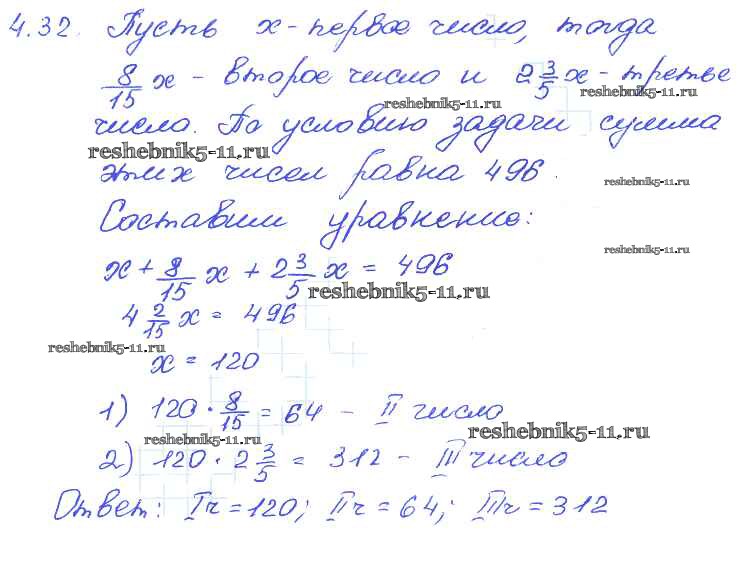 4.32. Пусть x - первое число, тогда
8/15 x - второе число и 2 3/5 x - третье
reshebnik5-11.ru
reshebnik5-11.ru
число. По условию задачи сумма
reshebnik5-11.ru
этих чисел равна 496.
reshebnik5-11.ru
Составим уравнение:
reshebnik5-11.ru
x + 8/15 x + 2 3/5 x = 496
reshebnik5-11.ru
4 2/15 x = 496
reshebnik5-11.ru
x = 120
1) 120 · 8/15 = 64 - II число
reshebnik5-11.ru
reshebnik5-11.ru
2) 120 · 2 3/5 = 312 - III число
Ответ: Iч = 120; IIч = 64; IIIч = 312